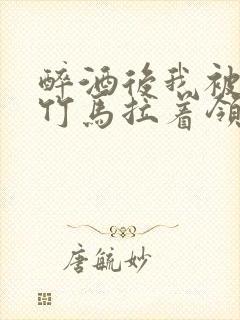 醉酒後我被
竹馬拉着領
唐毓妙